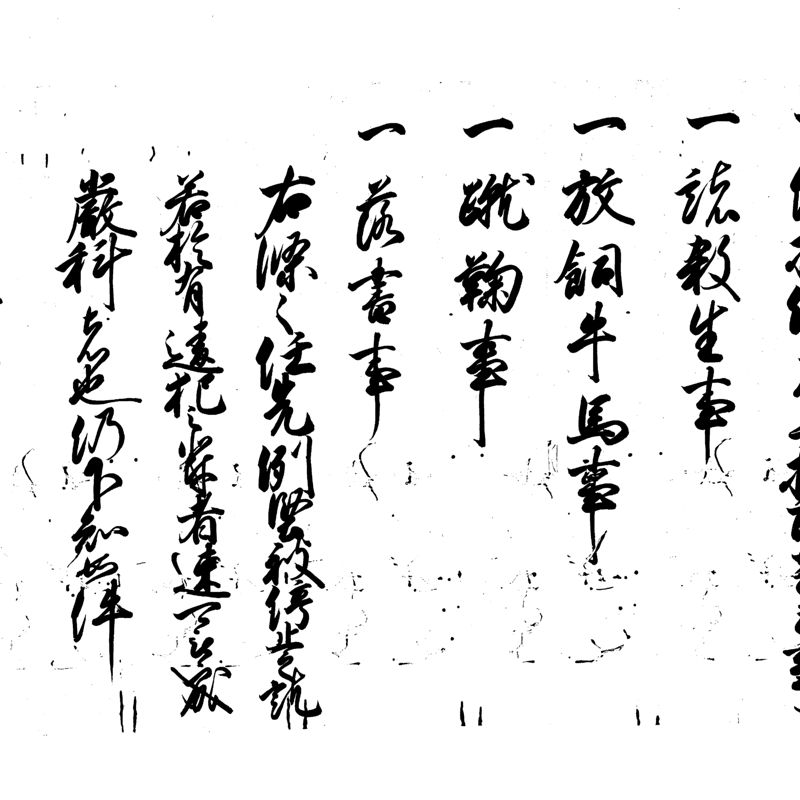 一 諸殺生事
一 放飼牛馬事
一 蹴鞠事
一 落書事
右條々任先例堅被停止訖
若於有違犯之輩者速可被處
嚴科者也仍下知如件